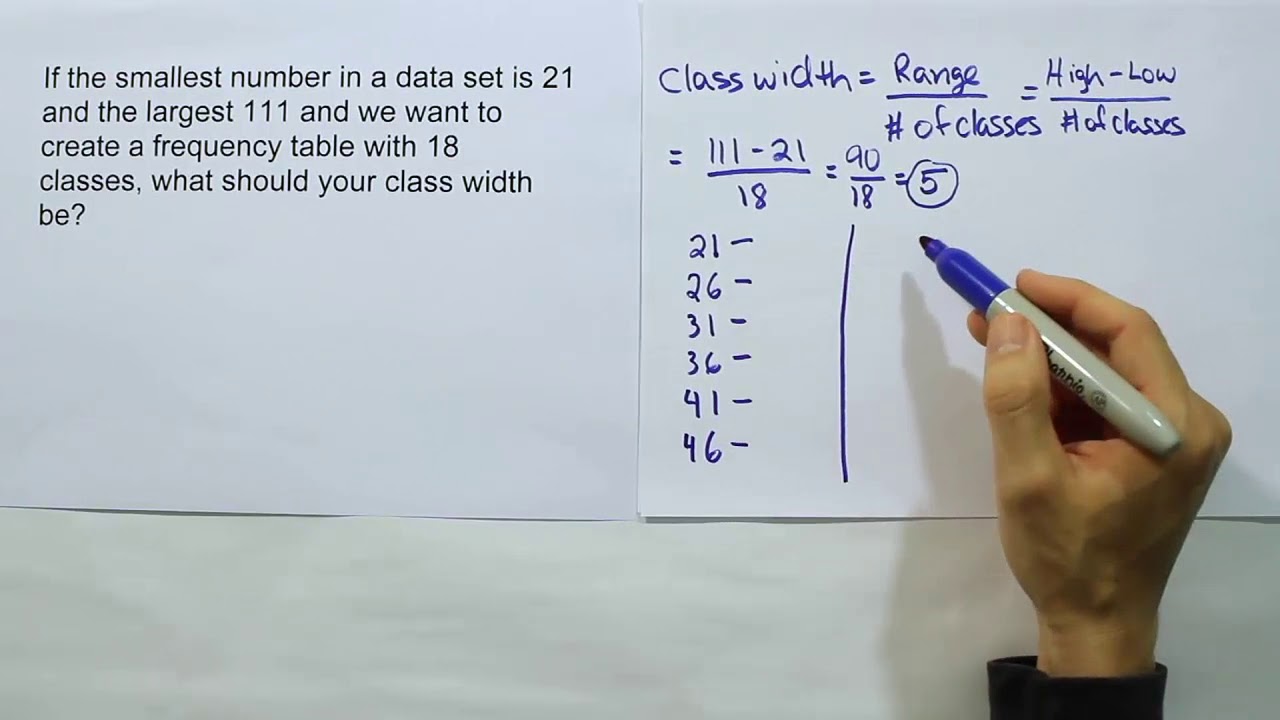 If the smallest number in a data set is 21
and the largest 111 and we want to
create a frequency table with 18
classes, what should your class width
be?
Class width = Range / # of classes = High - Low / # of classes
= 111 - 21 / 18 = 90 / 18 = 5
21 -
26 -
31 -
36 -
41 -
46 -
Sharpie